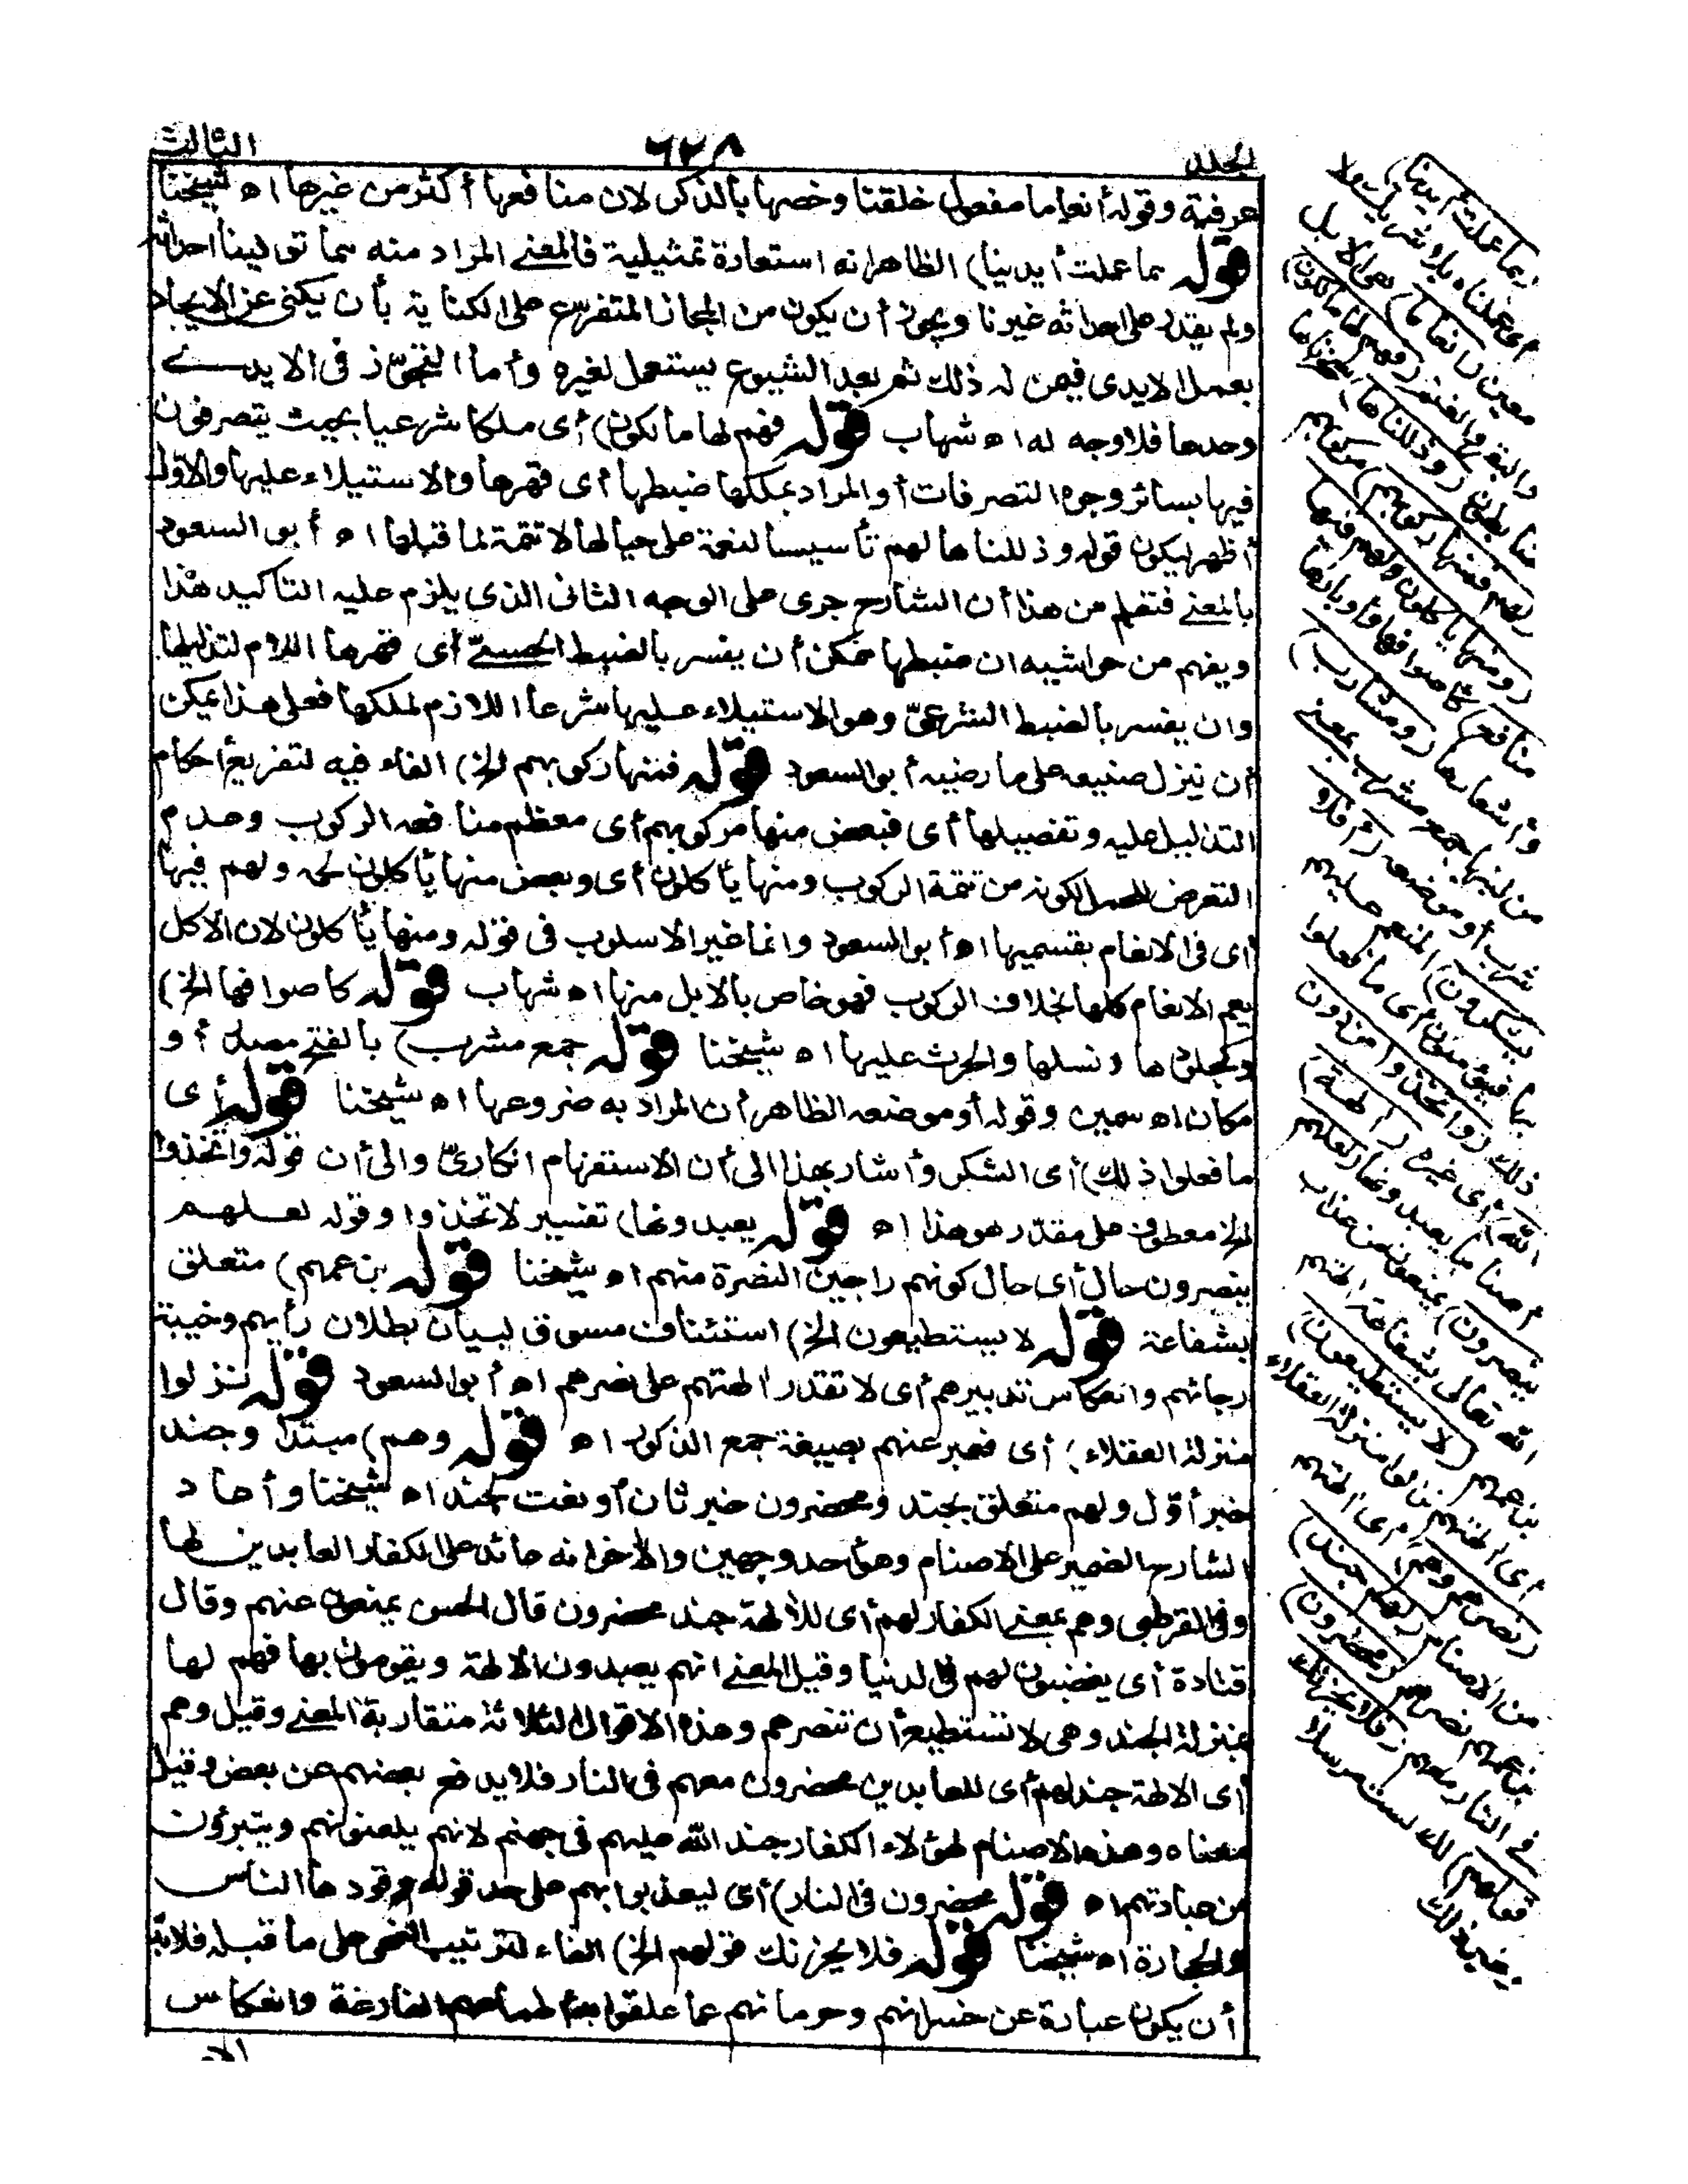 المجلد ٦٢٨ الثالث
عرفية وقوله أنعاما مفعول خلقنا وخصها بالذكر لان منافعها أكثر من غيرها اه شيخنا
قوله مما عملت أيدينا) الظاهر انه استعارة تمثيلية فالمعنى المراد منه مما تولينا احداثه
ولم يقدر على احداثه غيرنا ويجوز أن يكون من المجاز المتفرع على الكناية بأن يكنى عن الايجاد
بعمل الايدى فيمن له ذلك ثم بعد الشيوع يستعمل لغيره وأما التجوّز فى الايدى
وحدها فلا وجه له اه شهاب قوله فهم لها مالكون) أى ملكا شرعيا بحيث يتصرفون
فيها بسائر وجوه التصرفات أو المراد بملكها ضبطها أى قهرها والاستيلاء عليها والاوّل
أظهر ليكون قوله وذللناها لهم تأسيسا لنعمة على حيالها لا تتمة لما قبلها اه أبو السعود
بالمعنى فتعلم من هذا أن الشارح جرى على الوجه الثانى الذى يلزم عليه التاكيد هذا
ويفهم من حواشيه ان ضبطها يمكن أن يفسر بالضبط الحسىّ أى قهرها اللازم لتذليلها
وان يفسر بالضبط الشرعىّ وهو الاستيلاء عليها شرعا اللازم لملكها فعلى هذا يمكن
أن ينزل صنيعه على ما رضيه أبو السعود قوله فمنها ركوبهم الخ) الفاء فيه لتفريع أحكام
التذليل عليه وتفصيلها أى فبعض منها مركوبهم أى معظم منافعه الركوب وعدم
التعرض للحمل لكونه من تتمة الركوب ومنها يأكلون أى وبعض منها يأكلون لحمه ولهم فيها
أى فى الانعام بقسميها اه أبو السعود وانما غير الاسلوب فى قوله ومنها يأكلون لان الاكل
يعم الانعام كلها بخلاف الركوب فهو خاص بالابل منها اه شهاب قوله كاصوافها الخ)
وكجلودها ونسلها والحرث عليها اه شيخنا قوله جمع مشرب) بالفتح مصدر أو
مكان اه سمين وقوله أو موضعه الظاهر أن المراد به ضروعها اه شيخنا قوله أى
ما فعلوا ذلك) أى الشكر وأشار بهذا الى أن الاستفهام انكارىّ والى أن قوله واتخذوا
الخ معطوف على مقدّر هو هذا اه قوله يعبدونها) تفسير لاتخذوا وقوله لعلهم
ينصرون حال أى حال كونهم راجين النصرة منهم اه شيخنا قوله بزعمهم) متعلق
بشفاعة قوله لا يستطيعون الخ) استئناف مسوق لبيان بطلان رأيهم وخيبة
رجائهم وانعكاس تدبيرهم أى لا تقدر آلهتهم على نصرهم اه أبو السعود قوله نزلوا
منزلة العقلاء) أى فعبر عنهم بصيغة جمع الذكور اه قوله وهم) مبتدا وجند
خبر أوّل ولهم متعلق بجند ومحضرون خبر ثان أو نعت لجند اه شيخنا وأعاد
الشارح الضمير على الاصنام وهو أحد وجهين والآخر انه عائد على الكفار العابدين لها
وفى القرطبى وهم بمعنى الكفار لهم أى للآلهة جند محضرون قال الحسن يمنعون عنهم وقال
قتادة أى يغضبون لهم فى الدنيا وقيل المعنى انهم يعبدون الالهة ويقومون بها فهم لها
بمنزلة الجند وهى لا تستطيع أن تنصرهم وهذه الاقوال الثلاثة متقاربة المعنى وقيل وهم
أى الالهة جند لهم أى للعابدين محضرون معهم فى النار فلا يدفع بعضهم عن بعض وقيل
معناه وهذه الاصنام لهؤلاء الكفار جند الله عليهم فى جهنم لانهم يلعنونهم ويتبرؤن
من عبادتهم اه قوله محضرون فى النار) أى ليعذبوا بهم على حد قوله وقودها الناس
والحجارة اه شيخنا قوله فلا يحزنك قولهم الخ) الفاء لترتيب النهى على ما قبله فلا بدّ
أن يكون عبارة عن خسرانهم وحرمانهم عما علقوا به أطماعهم الفارغة وانعكاس
الامر
(مما عملت أيدينا)
أى عملناه بلا شريك ولا
معين (أنعاما) هى الابل
والبقر والغنم (فهم لها مالكون)
ضابطون (وذللناها) سخرناها
لهم فمنها ركوبهم) مركوبهم
(ومنها يأكلون ولهم فيها
منافع) كأصوافها وأوبارها
وأشعارها (ومشارب)
من لبنها جمع مشرب بمعنى
شرب أو موضعه (أفلا
يشكرون) المنعم عليهم
بها فيؤمنون أى ما فعلوا
ذلك (واتخذوا من دون
الله) أى غيره (آلهة)
أصناما يعبدونها (لعلهم
ينصرون) يمنعون من عذاب
الله تعالى بشفاعة آلهتهم
بزعمهم (لا يستطيعون)
أى آلهتهم نزلوا منزلة العقلاء
(نصرهم وهم) أى آلهتهم
من الاصنام (لهم جند)
بزعمهم نصرهم (محضرون)
فى النار معهم (فلا يحزنك
قولهم) لك لست مرسلا
وغير ذلك